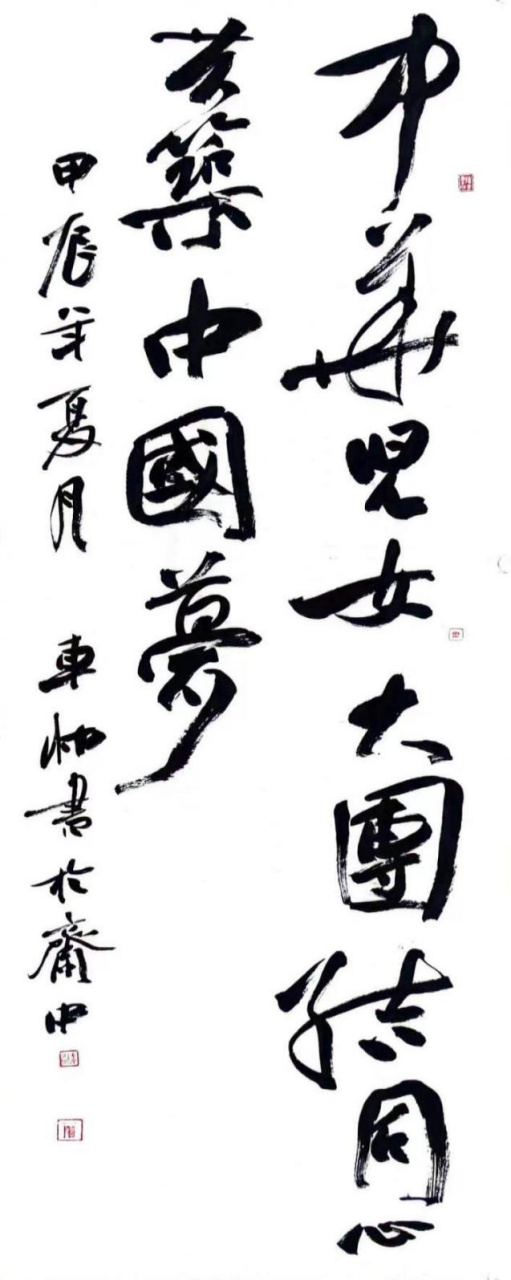 中華兒女大團結同心
共築中國夢
甲辰年夏月 車 書於齋中